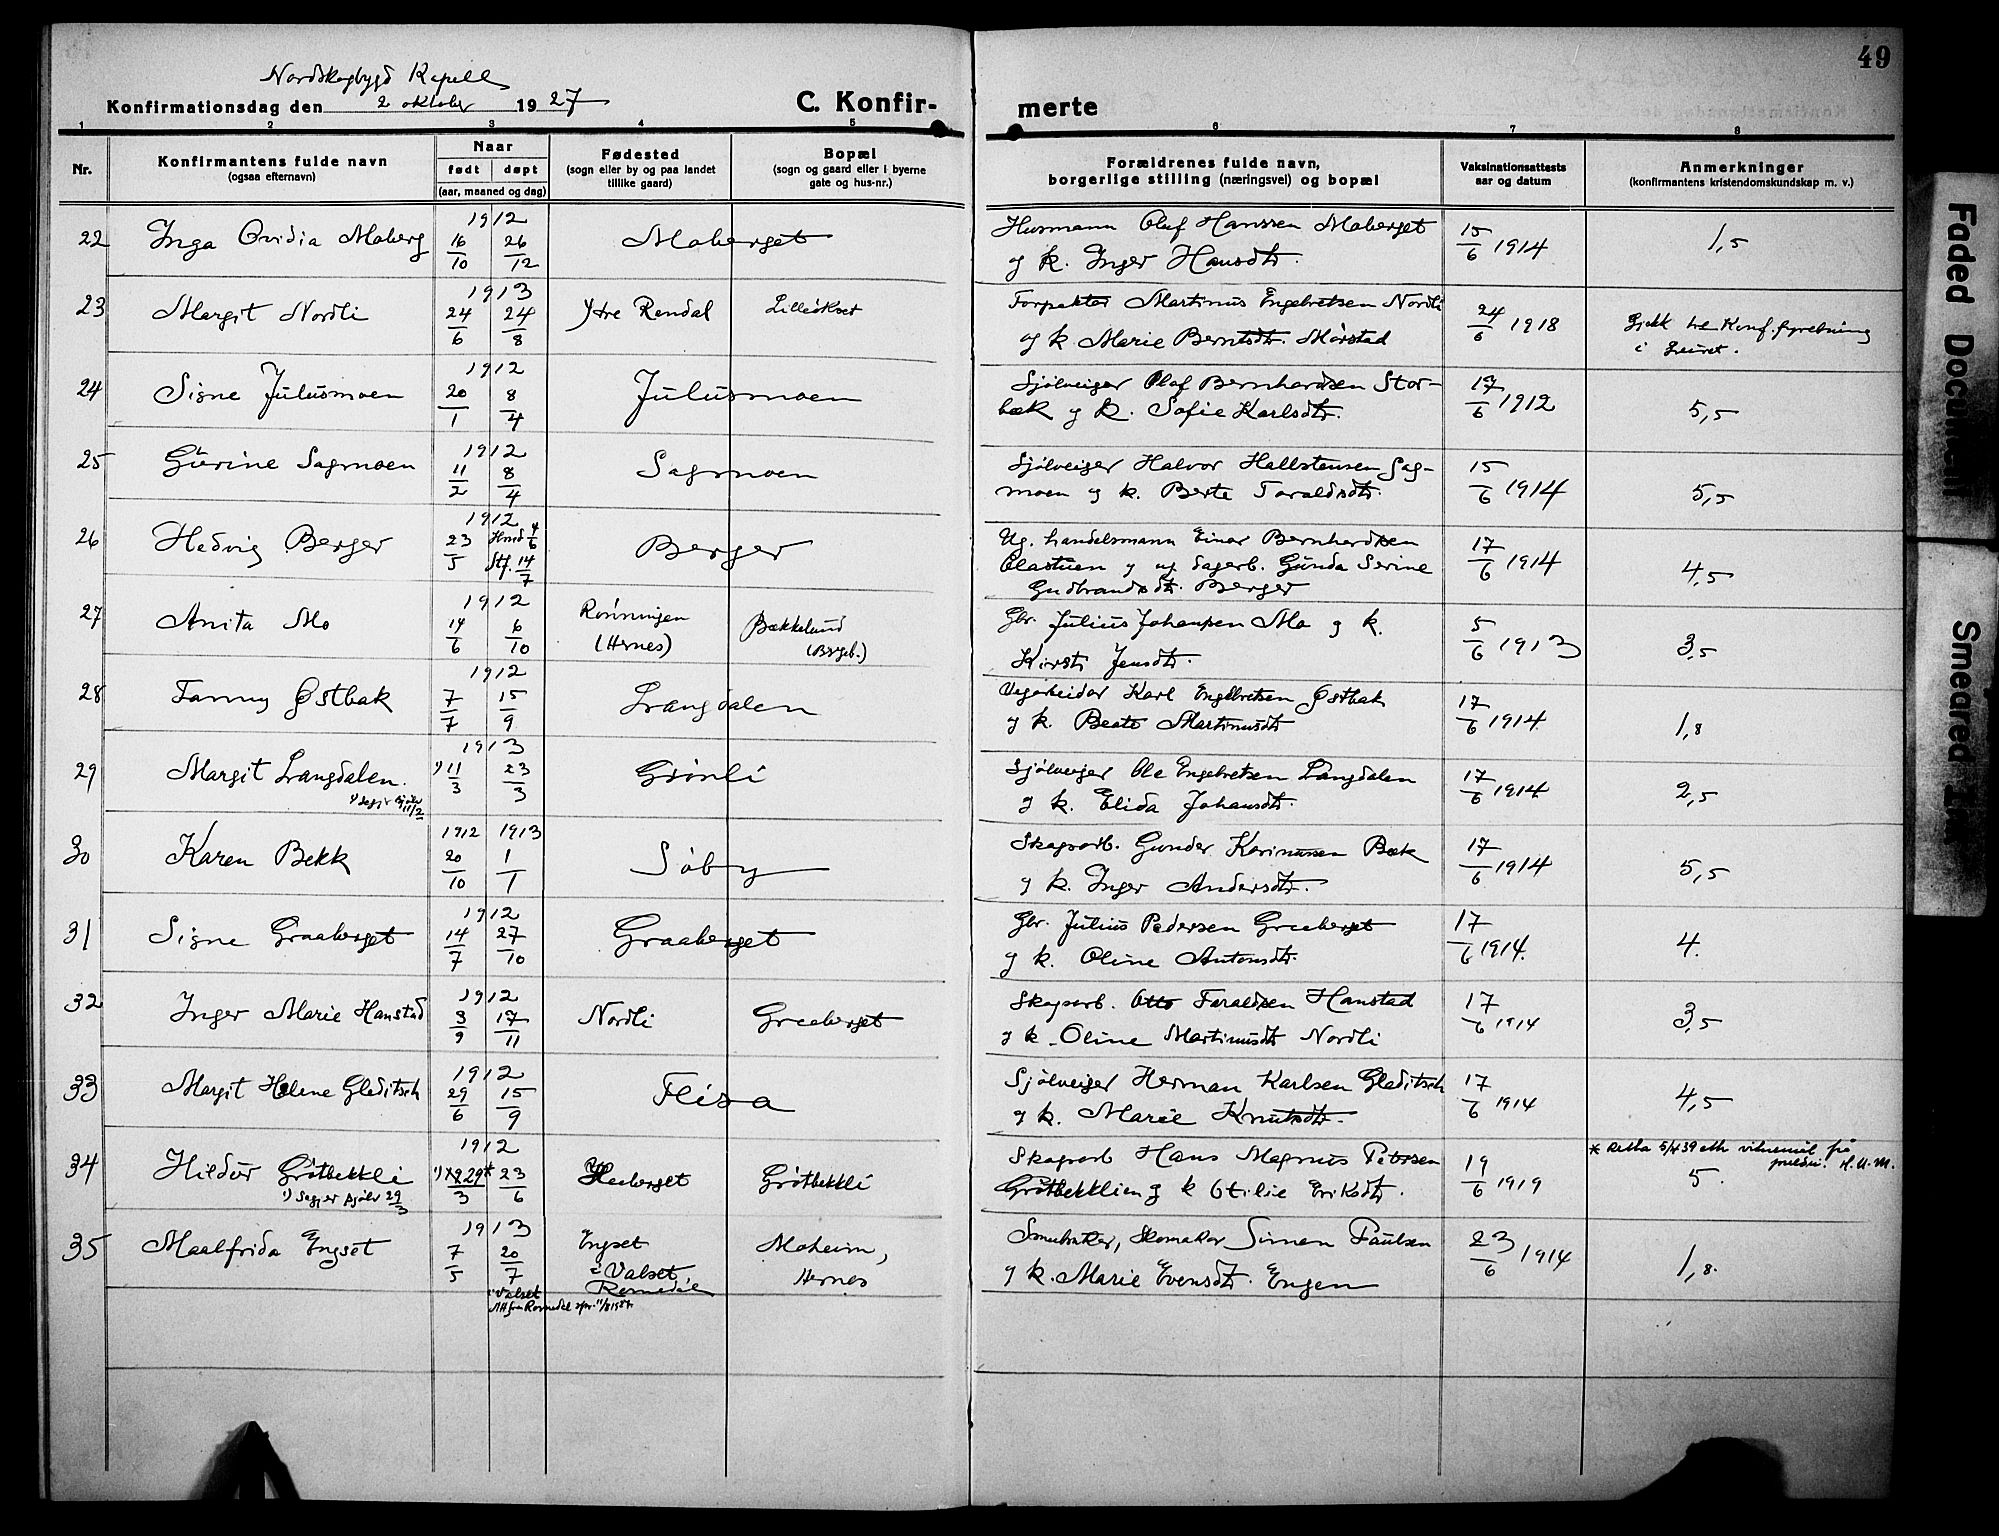 49
Nordskogbygd Kapell
Konfirmationsdag den 2 oktober 1927
C. Konfir-
merte
1 2 3 4 5 6 7 8
Nr.
Konfirmantens fulde navn
(ogsaa efternavn)
Naar
født døpt
(aar, maaned og dag)
Fødested
(sogn eller by og paa landet
tillike gaard)
Bopæl
(sogn og gaard eller i byerne
gate og hus-nr.)
Forældrenes fulde navn,
borgerlige stilling (næringsvei) og bopæl
Vaksinationsattests
aar og datum
Anmerkninger
(konfirmantens kristendomskundskap m. v.)
22 Inga Ovidia Moberg 1912 16/10 26/12 Moberget
Husmann Oluf Hanssen Moberget
og k. Inger Hansdtr. 15/6 1914 1,5
23 Margit Nordli 1913 24/6 24/8 Ytre Rendal Lilleökset
Forpakter Martinus Engebretsen Nordli
og k. Marie Berntsdtr. Mørstad 24/6 1918
i
24 Signe Julusmoen 1912 20/1 8/4 Julusmoen
Sjølveiger Olaf Bernhardsen Stor-
bæk og k. Sofie Karlsdtr. 17/6 1912 5,5
25 Gürine Sagmoen 1912 11/2 8/4 Sagmoen
Sjølveiger Halvor Hallstensen Sag-
moen og k. Berte Taraldsdtr. 15/6 1914 5,5
26 Hedvig Berger 1912 23/5 4/6 Stf. 14/7 Berger
Ug. handelsmann Einar Bernhardsen
og ug. dagarb. Gunda Serine
Gudbrandsdtr. Berger 17/6 1914 4,5
27 Anita Mo 1912 14/6 6/10 Rønningen
(Hernes) Bækkelund
(Brgeb.)
Gbr. Julius Johansen Mo og k.
Kirsti Jensdtr. 5/6 1913 3,5
28 Fanny Østbak 1912 7/7 15/9 Langdalen
Vegarbeider Karl Engebretsen Østbak
og k. Beate Martinusdtr 17/6 1914 1,8
29 Margit Langdalen. 1913 1) 11/3 23/3 Grönli
11/2
Sjølveiger Ole Engebretsen Langdalen
og k. Elida Johansdtr. 17/6 1914 2,5
30 Karen Bekk 1912 1913 20/10 1/1 Söby
Skogsarb. Gunder Karinussen Bæk
og k. Inger Andersdtr. 17/6 1914 5,5
31 Signe Graaberget 1912 14/7 27/10 Graaberget
Gbr. Julius Pedersen Graaberget
og k. Oline Antonsdtr. 17/6 1914. 4.
32 Inger Marie Hanstad 1912 3/9 17/11 Nordli Graaberget
Skogsarb. Otto Taraldsen Hanstad
og k. Oline Martinusdtr Nordli 17/6 1914 3,5
33 Margit Helene Gleditsch 1912 29/6 15/9 Flisa
Sjølveiger Herman Karlsen Gleditsch
og k. Marie Knutsdtr. 17/6 1914 4,5
34 Hildur Grøtbekkli 1912 1) 29*/3 23/6 Heberget Grøtbekkli
1) Seg jer sjølv 29/3
Skogsarb Hans Magnus Petersen
Grøtbekklien og k Otilie Eriksdtr. 19/6 1919 5.
* Retta 5/4 39 etter vitnemål frå
H.U.M.
35 Maalfrida Engset 1913 7/5 20/7 Engset
i Valset
Romedal Moheim,
Hernes
Smaabruker, Skomaker Simen Paulsen
og k. Marie Evensdtr. Engen 23/6 1914 1,8.
Faded Document
Smeared Ink